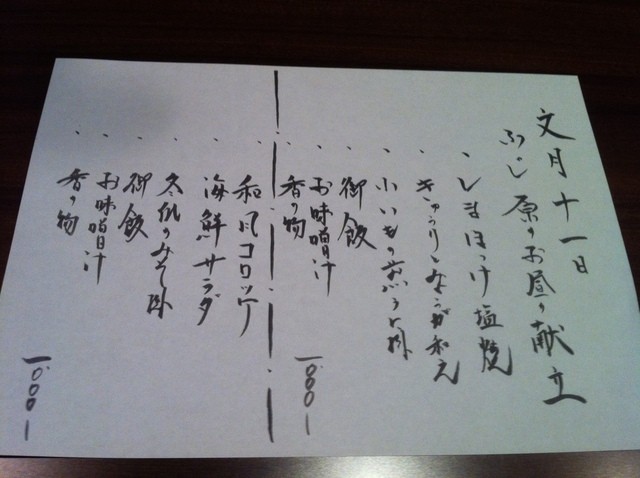 文月十一日
ふじ原のお昼の献立
、しまほっけ塩焼
、きゅうりとみょうが和え
、小いもの煎りに掛
、御飯
、お味噌汁
、香の物
一〇〇〇一
、和風コロッケ
、海鮮サラダ
、冬瓜のみそ掛
、御飯
、お味噌汁
、香の物
一〇〇〇一